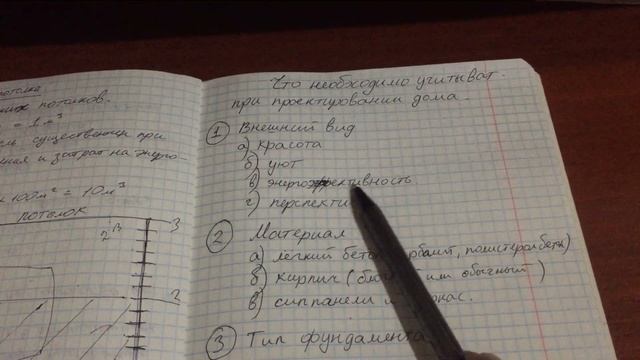 потолка
них потолков.
= 1 м³
существенен при
ния и затрат на энерго-
100м² = 10м³
потолок
3
2
Что необходимо учитыват.
при проектировании дома.
① Внешний вид
а) красота
б) уют
в) энергоэффективность
г) перспекти
② Материал
а) легкий бетон полистеролбетон)
б) кирпич ( или обычный )
в) сип панели и каркас.
③ Тип фундамента